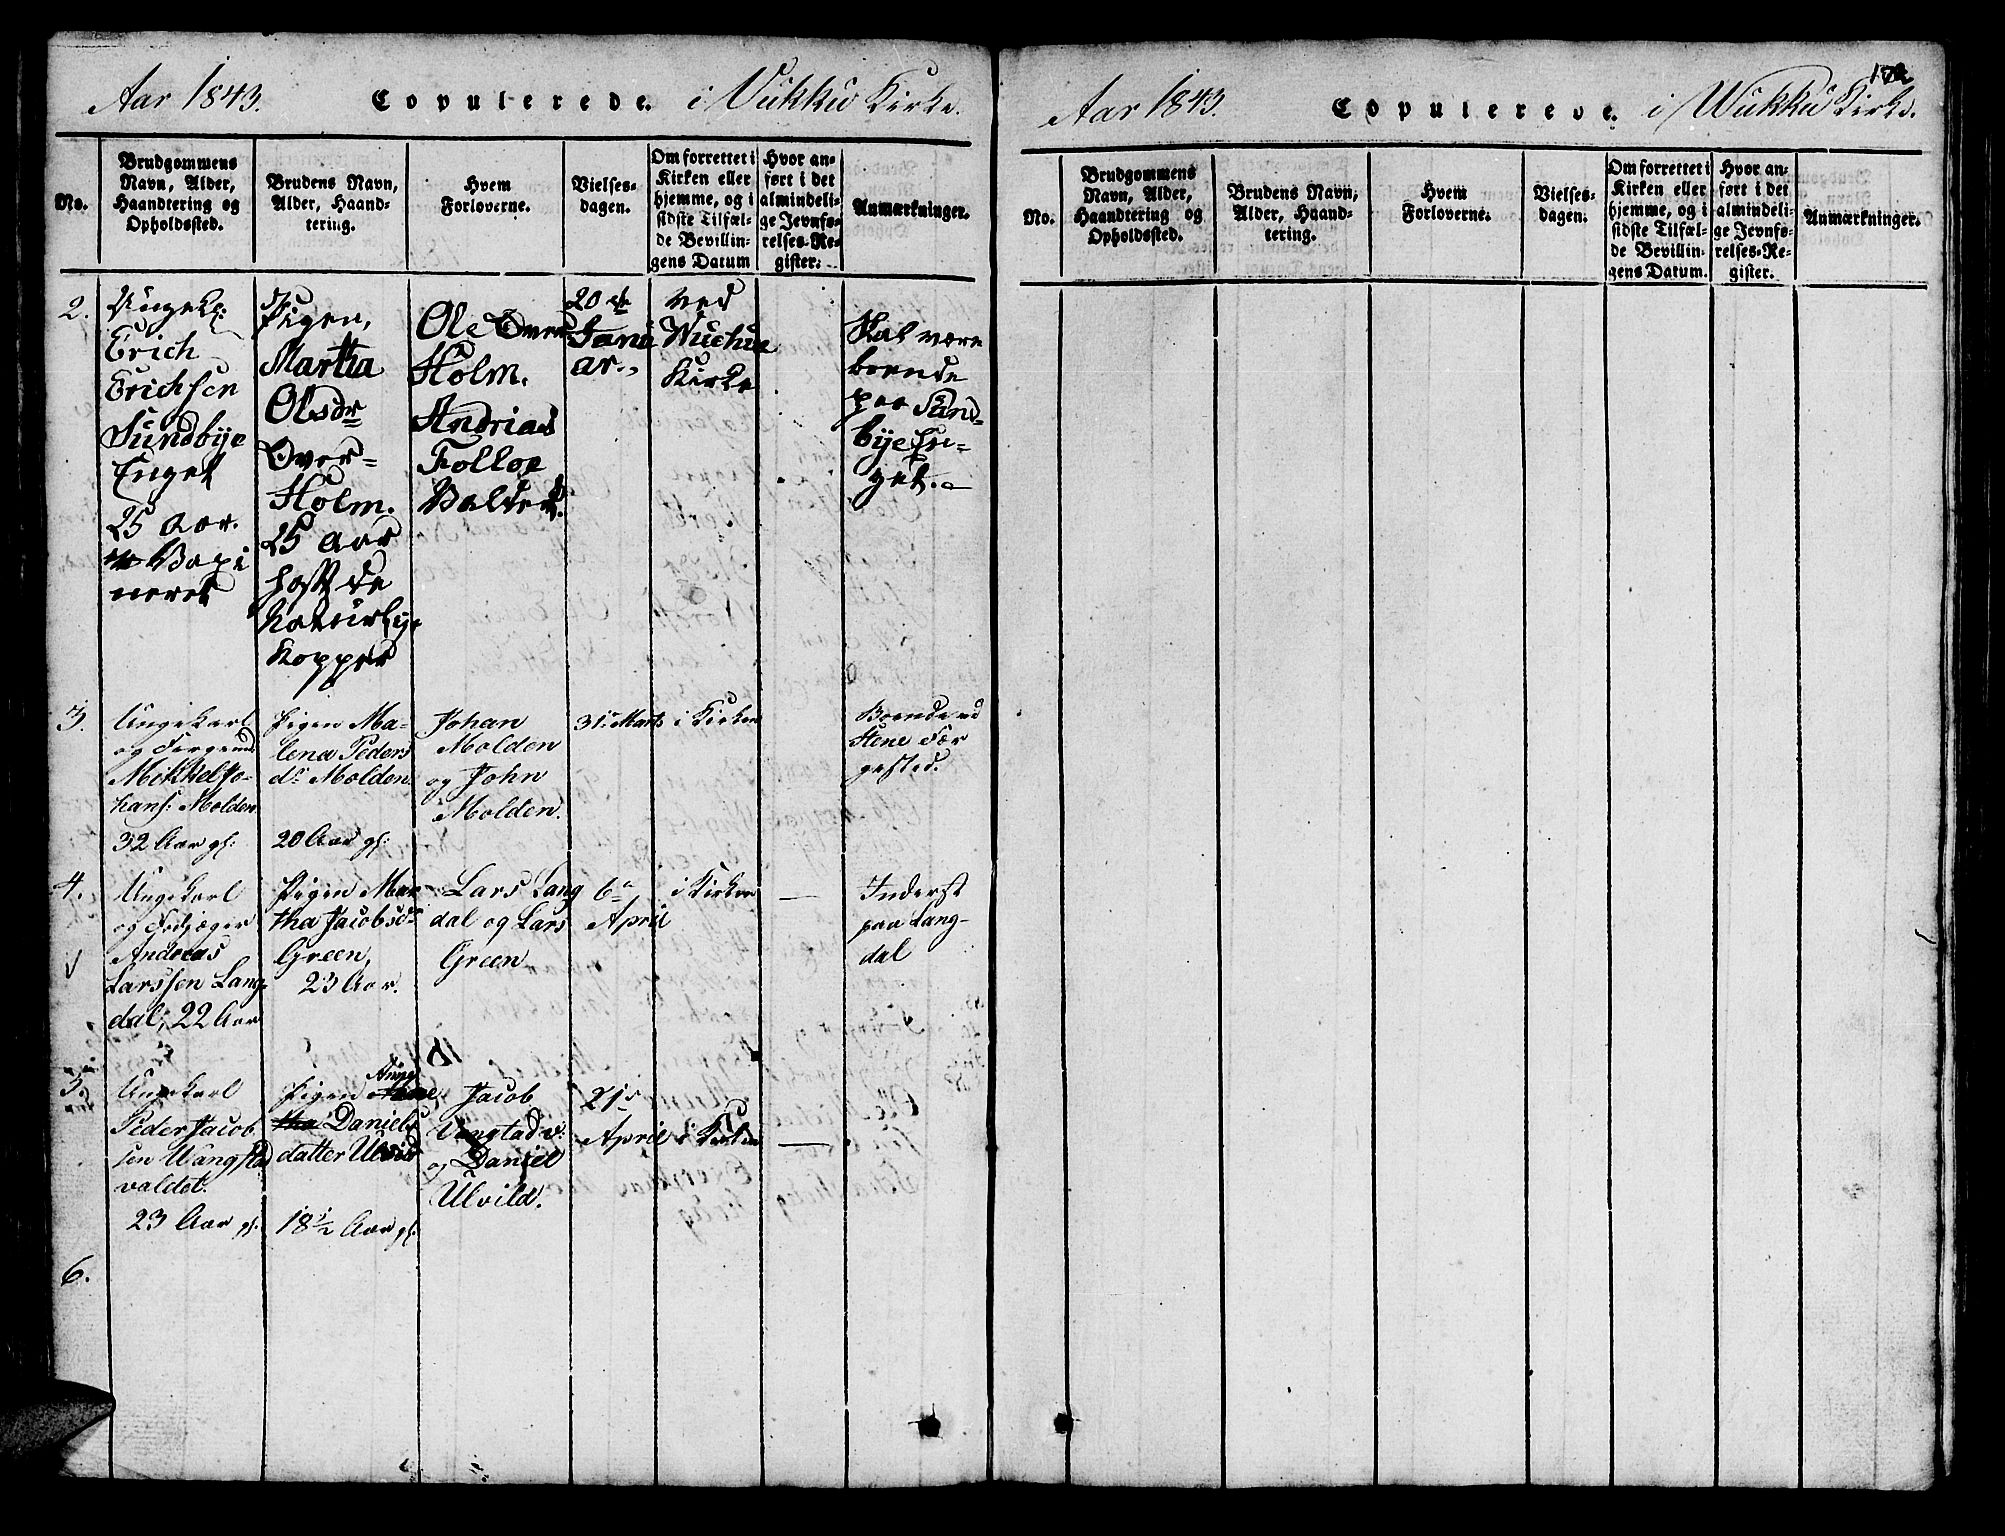 Aar 1843. Copulerede. i Vukku Kirke.
No.
Brudgommens
Navn, Alder,
Haandtering og
Opholdssted.
Brudens Navn,
Alder, Haand-
tering.
Hvem
Forloverne.
Vielses-
dagen.
Om forrettet i
Kirken eller
hjemme, og i
sidste Tilfæl-
de Bevillin-
gens Datum
Hvor an-
ført i det
almindeli-
ge Jevnfø-
relses-Re-
gister.
Anmærkninger.
2.
Ungek:
Erich
Erichsen
Sundbye
Enget
25 Aar.
Vaxi
neret
Pigen,
Martha
Olsdr
Over-
Holm.
25 Aar
haft de
Naturlige
Kopper
Ole Over
Holm.
Andrias
Folloe
Valster.
20de
Janu
ar.,
ved
Wuchue
Kirke
Skal være
boende
paa Sund-
bye En-
get.
3.
Ungekarl
og Færgemd
Mikkel Jo-
hans: Molden.
32 Aar gl:
Pigen Ma-
lena Peders
dr Molden.
20 Aar gl:
Johan
Molden
og John
Molden.
31te Marts
i Kirken
Boende ved
Stene Fær
gested.
4.
Ungekarl
og Fodjæger
Andreas
Larssen Lang-
dal, 22 Aar
Pigen Mar-
tha Jacobsdr
Green,
23 Aar.
Lars Lang
dal og Lars
Green
6te
April
i Kirken
—
Inderst
paa Lang-
dal
5.
Ungekarl
Peder Jacob
sen Wangstad
valdet.
23 Aar gl:
Pigen Anne
Daniels
datter Ulvild
18 1/2 Aar gl:
Jacob
Vangstadv:
og Daniel
Ulvild.
21de
April
i Kirken
—
6.
172
Aar 1843. Copulerede. i Wukku Kirke.
No.
Brudgommens
Navn, Alder,
Haandtering og
Opholdssted.
Brudens Navn,
Alder, Haand-
tering.
Hvem
Forloverne.
Vielses-
dagen.
Om forrettet i
Kirken eller
hjemme, og i
sidste Tilfæl-
de Bevillin-
gens Datum.
Hvor an-
ført i det
almindeli-
ge Jevnfø-
relses-Re-
gister.
Anmærkninger.